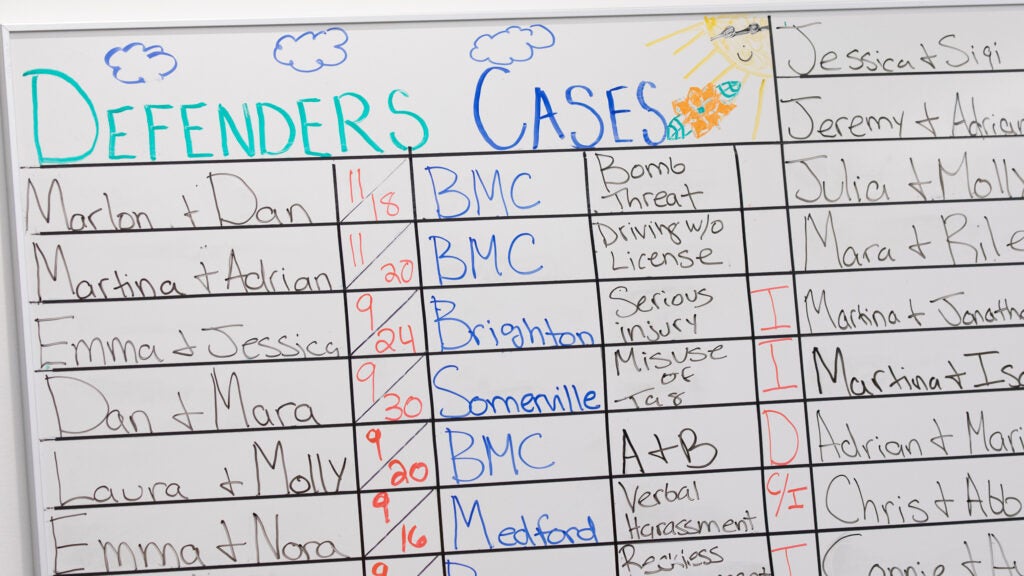 DEFENDERS CASES
Marlon + Dan 11/18 BMC Bomb Threat
Martina + Adrian 11/20 BMC Driving w/o License
Emma + Jessica 9/24 Brighton Serious injury I
Dan + Mara 9/30 Somerville Misuse of Tag I
Laura + Molly 9/20 BMC A+B D
Emma + Nora 9/16 Medford Verbal Harassment C/I
9 Reckless I
Jessica + Sigi
Jeremy + Adrian
Julia + Molly
Mara + Rile
Martina + Jonatha
Martina + Isa
Adrian + Mari
Chris + Abb
Connie + Au